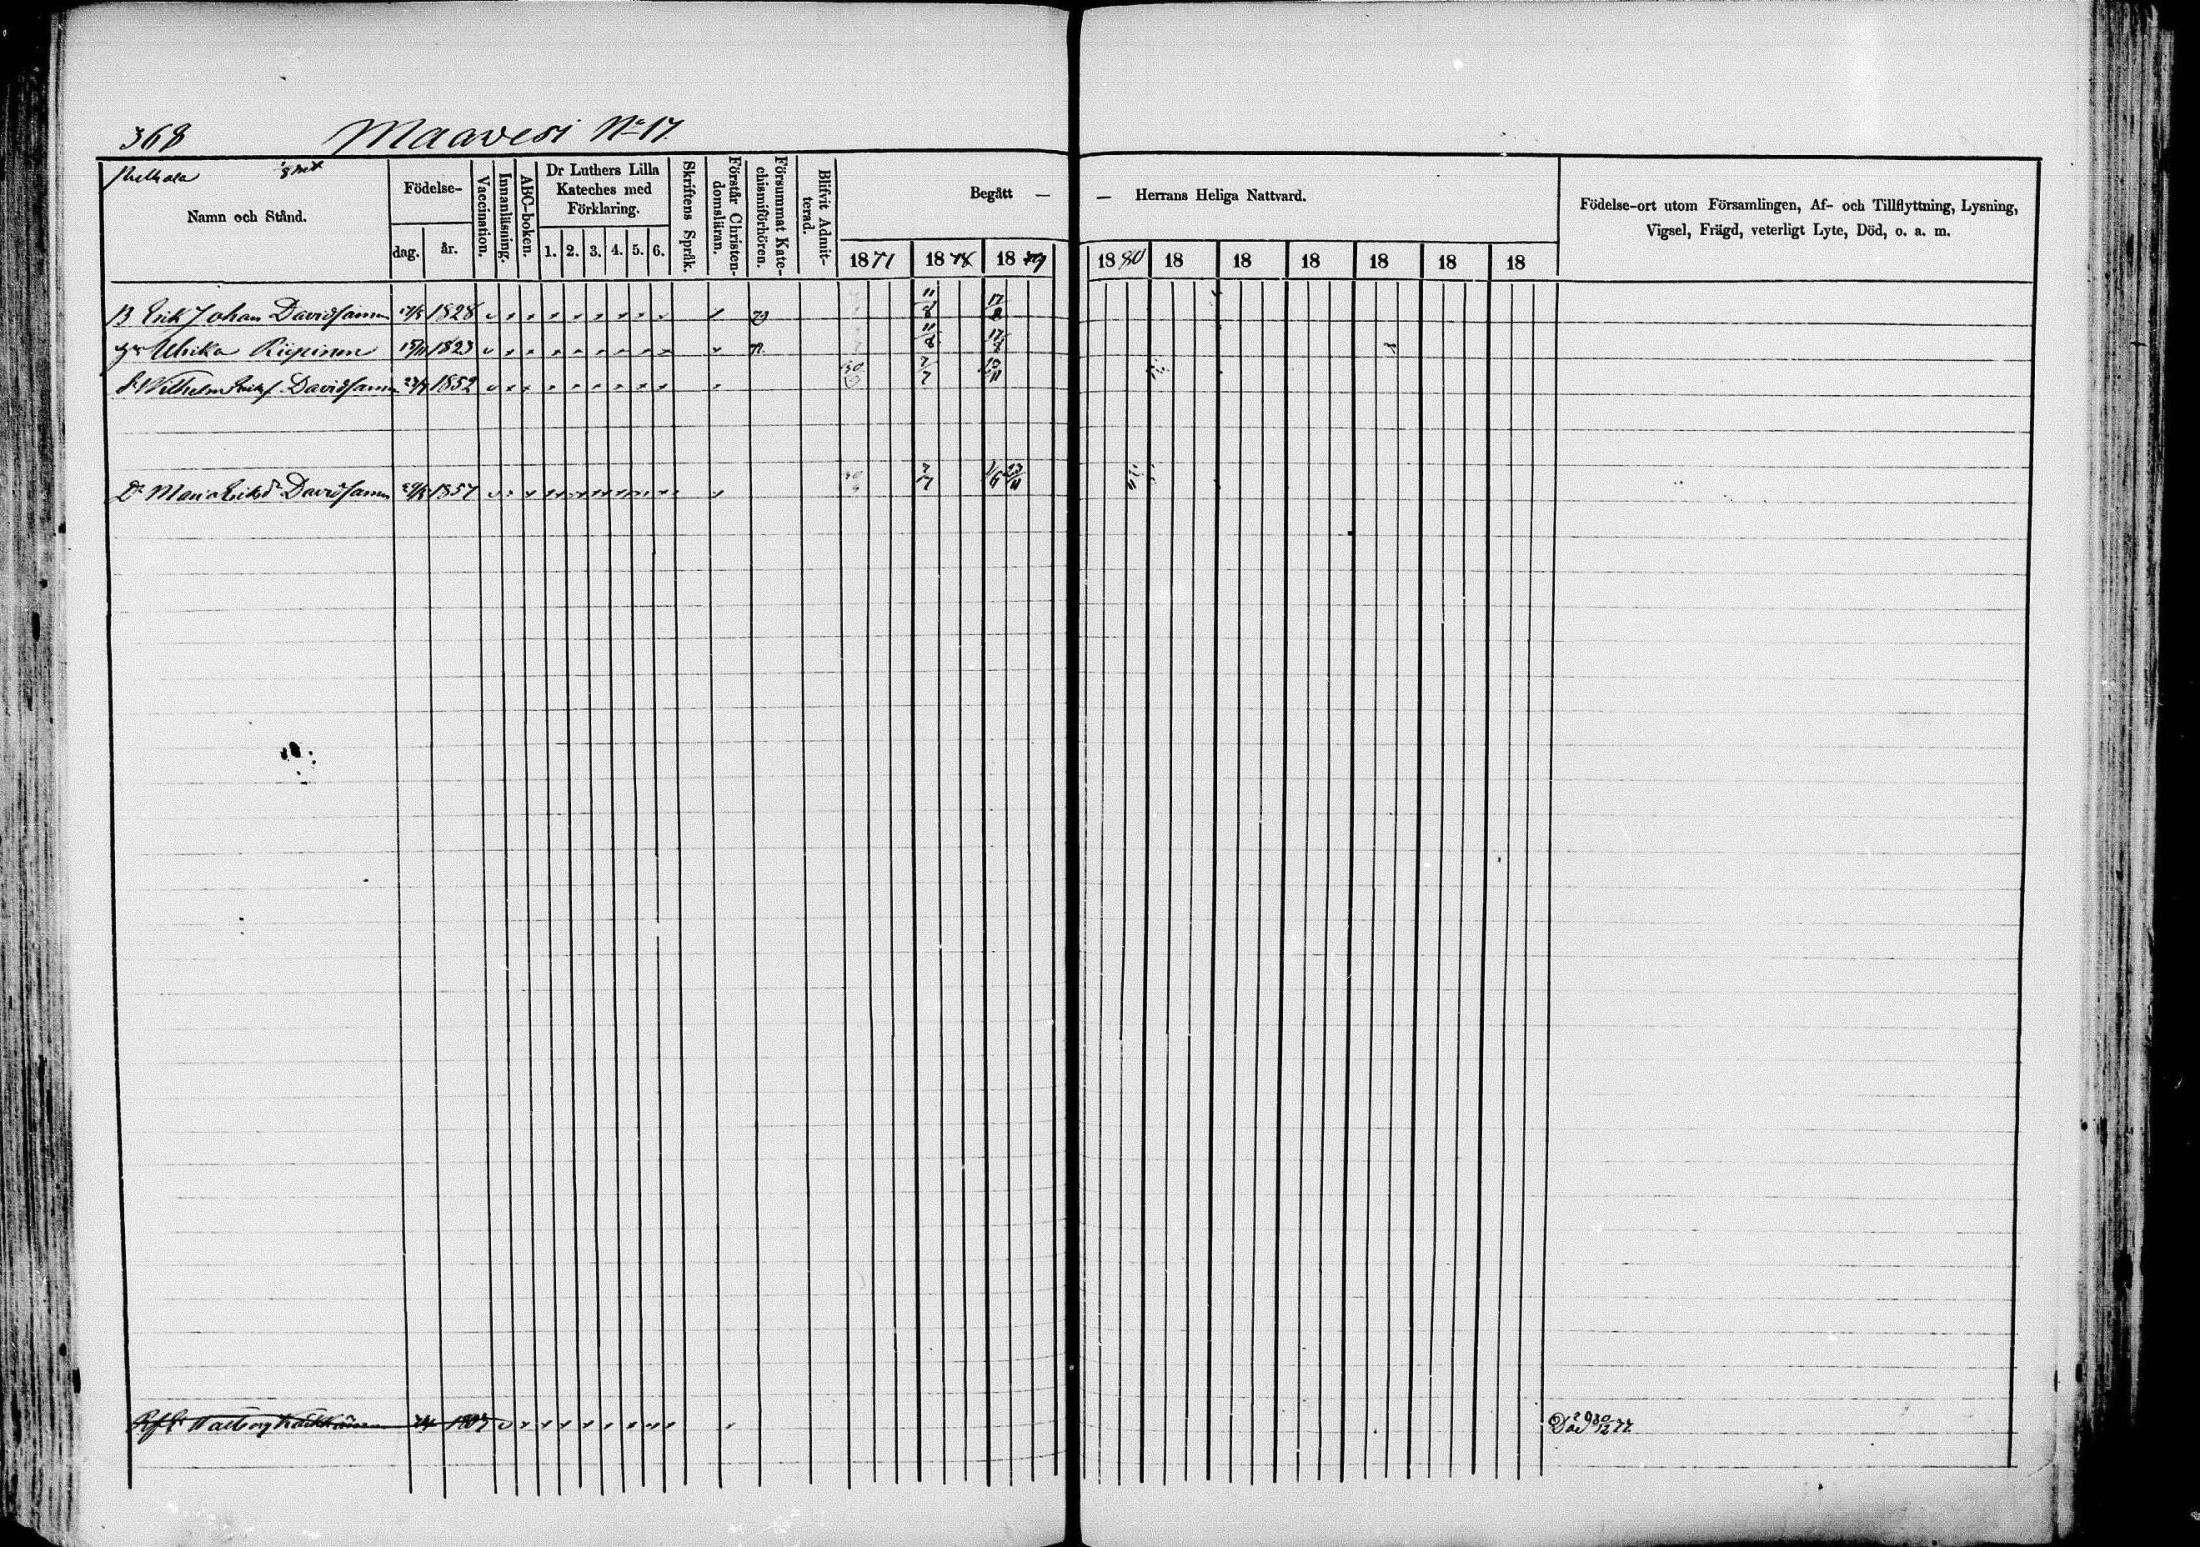 368 Maavesi No 17.
Namn och Stånd.
Födelse-
dag. år.
Vaccination.
Innanläsning.
ABC-boken.
Dr Luthers Lilla Kateches med Förklaring.
1. 2. 3. 4. 5. 6.
Skriftens Språk.
Förstår Christendomsläran.
Försummat Katechismiförhören.
Blifvit Admitterad.
Begått — — Herrans Heliga Nattvard.
1871 1878 1879 1880 18 18 18 18 18 18
Födelse-ort utom Församlingen, Af- och Tillflyttning, Lysning,
Vigsel, Frägd, veterligt Lyte, Död, o. a. m.
B Erik Johan Davidsainen 1828 11/8 17/8
Ulrika 1823 11/8 17/8
Wilhelm Davidsainen 1852 7/7
Dr Maria Eriksdr Davidsainen 1857 7/7
Walborg
Död 30/12 77